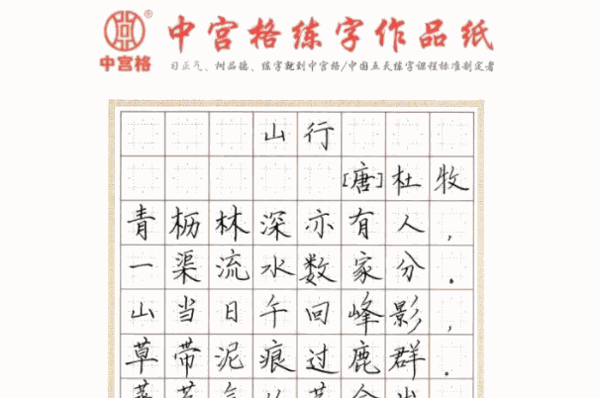 中宫格练字作品纸
中宫格
习正气、树品德、练字就到中宫格/中国五天练字课程标准制定者
山行
[唐]杜牧
青枥林深亦有人,
一渠流水数家分.
山当日午回峰影,
草带泥痕过鹿群.